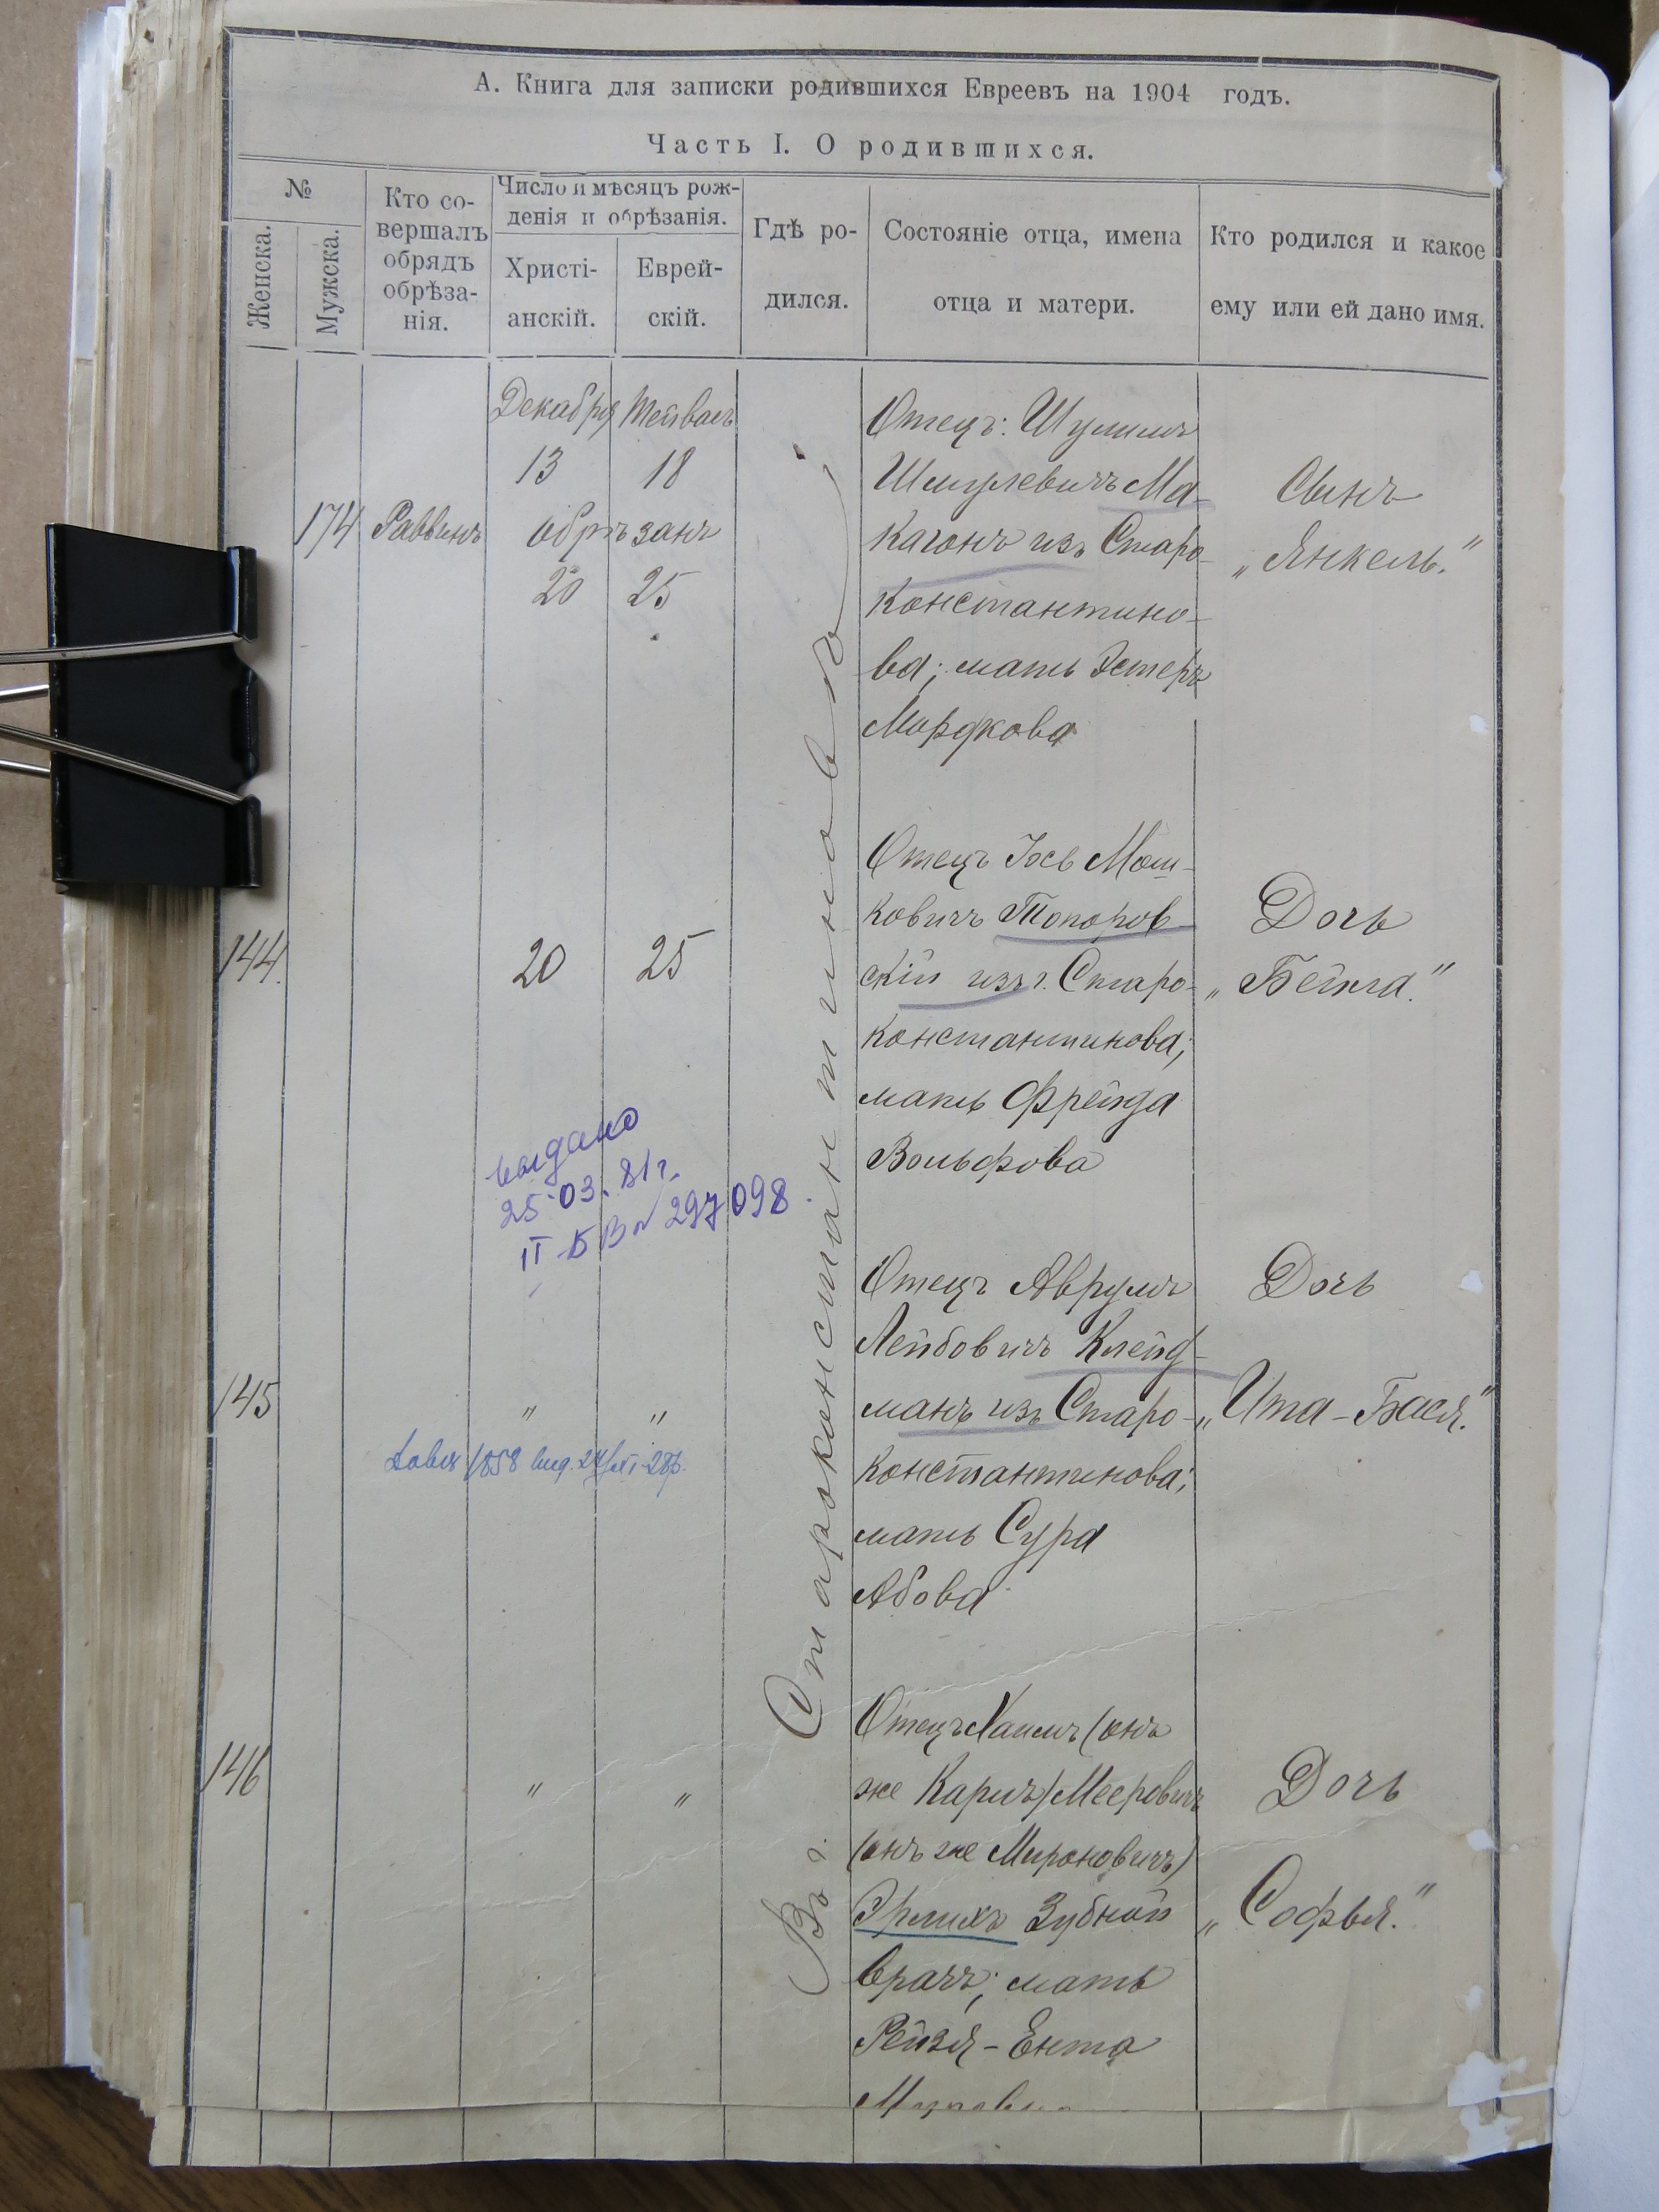 А. Книга для записки родившихся Евреевъ на 1904 годъ.
Часть I. О родившихся.
№
Женска.
Мужска.
Кто со-
вершалъ
обрядъ
обрѣза-
нія.
Число и мѣсяцъ рож-
денія и обрѣзанія.
Христі-
анскій.
Еврей-
скій.
Гдѣ ро-
дился.
Состояніе отца, имена
отца и матери.
Кто родился и какое
ему или ей дано имя.
Въ г. Староконстантиновѣ
174
Раввинъ
Декабря Тейвасъ
13 18
обрѣзанъ
20 25
Отецъ: Шулимъ
Шмулевичъ Ма-
кагонъ изъ Старо-
константино-
ва; мать Эстеръ
Мордкова
Сынъ
„Янкель."
144.
20 25
Отецъ Іосъ Мош-
ковичъ Топоров-
скій изъ г. Старо-
константинова;
мать Фрейда
Вольфова
Дочь
„Бейла."
выдано
25.03.81г.
297098.
145
" "
1858
Отецъ Аврумъ
Лейбовичъ Клейд-
манъ изъ Старо-
константинова;
мать Сура
Абова
Дочь
„Ита-Бася."
146
" "
Отецъ Хаимъ (онъ
же Каринъ) Мееровичъ
(онъ же Мироновичъ)
Эрлихъ Зубной
врачъ; мать
Рейзя-Ента
Дочь
„Софья."